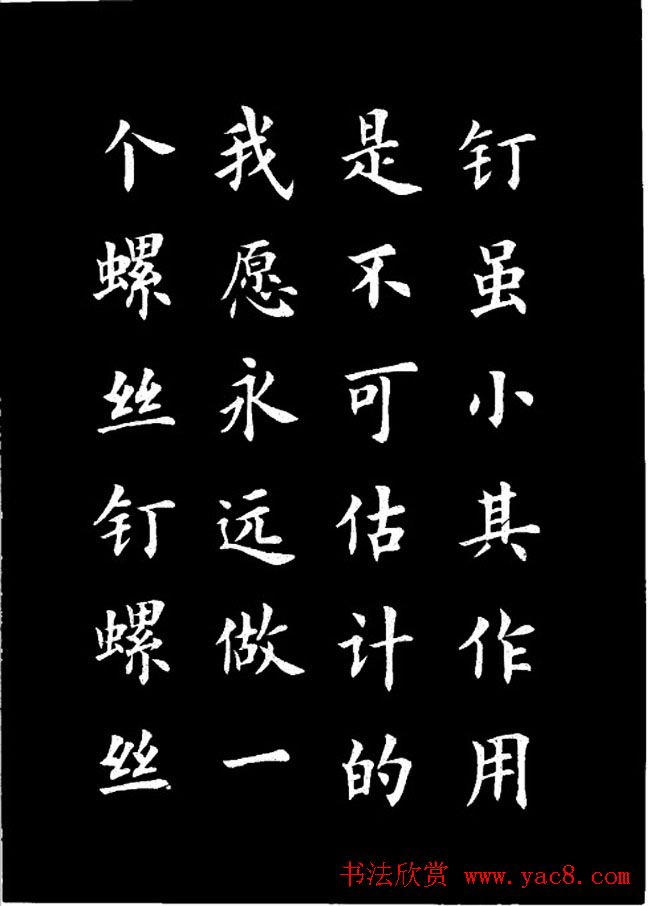 钉虽小其作用
是不可估计的
我愿永远做一
个螺丝钉螺丝
书法欣赏 www.yac8.com